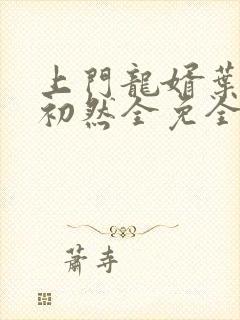 上門龍婿葉
初然全免全
蕭寺